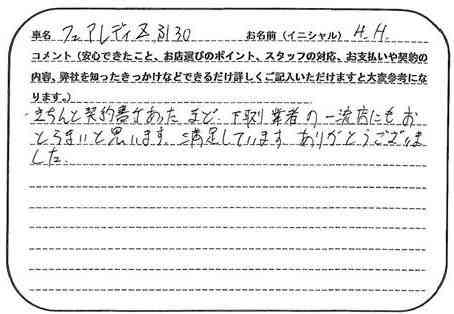 車名 フェアレディZ S130 お名前(イニシャル) H.H.
コメント(安心できたこと、お店選びのポイント、スタッフの対応、お支払いや契約の
内容、弊社を知ったきっかけなどできるだけ詳しくご記入いただけますと大変参考にな
ります。)
きちんと契約書があったまど、下取り業者の一流店にもお
とらまいと思います。満足しています。ありがとうございま
した。